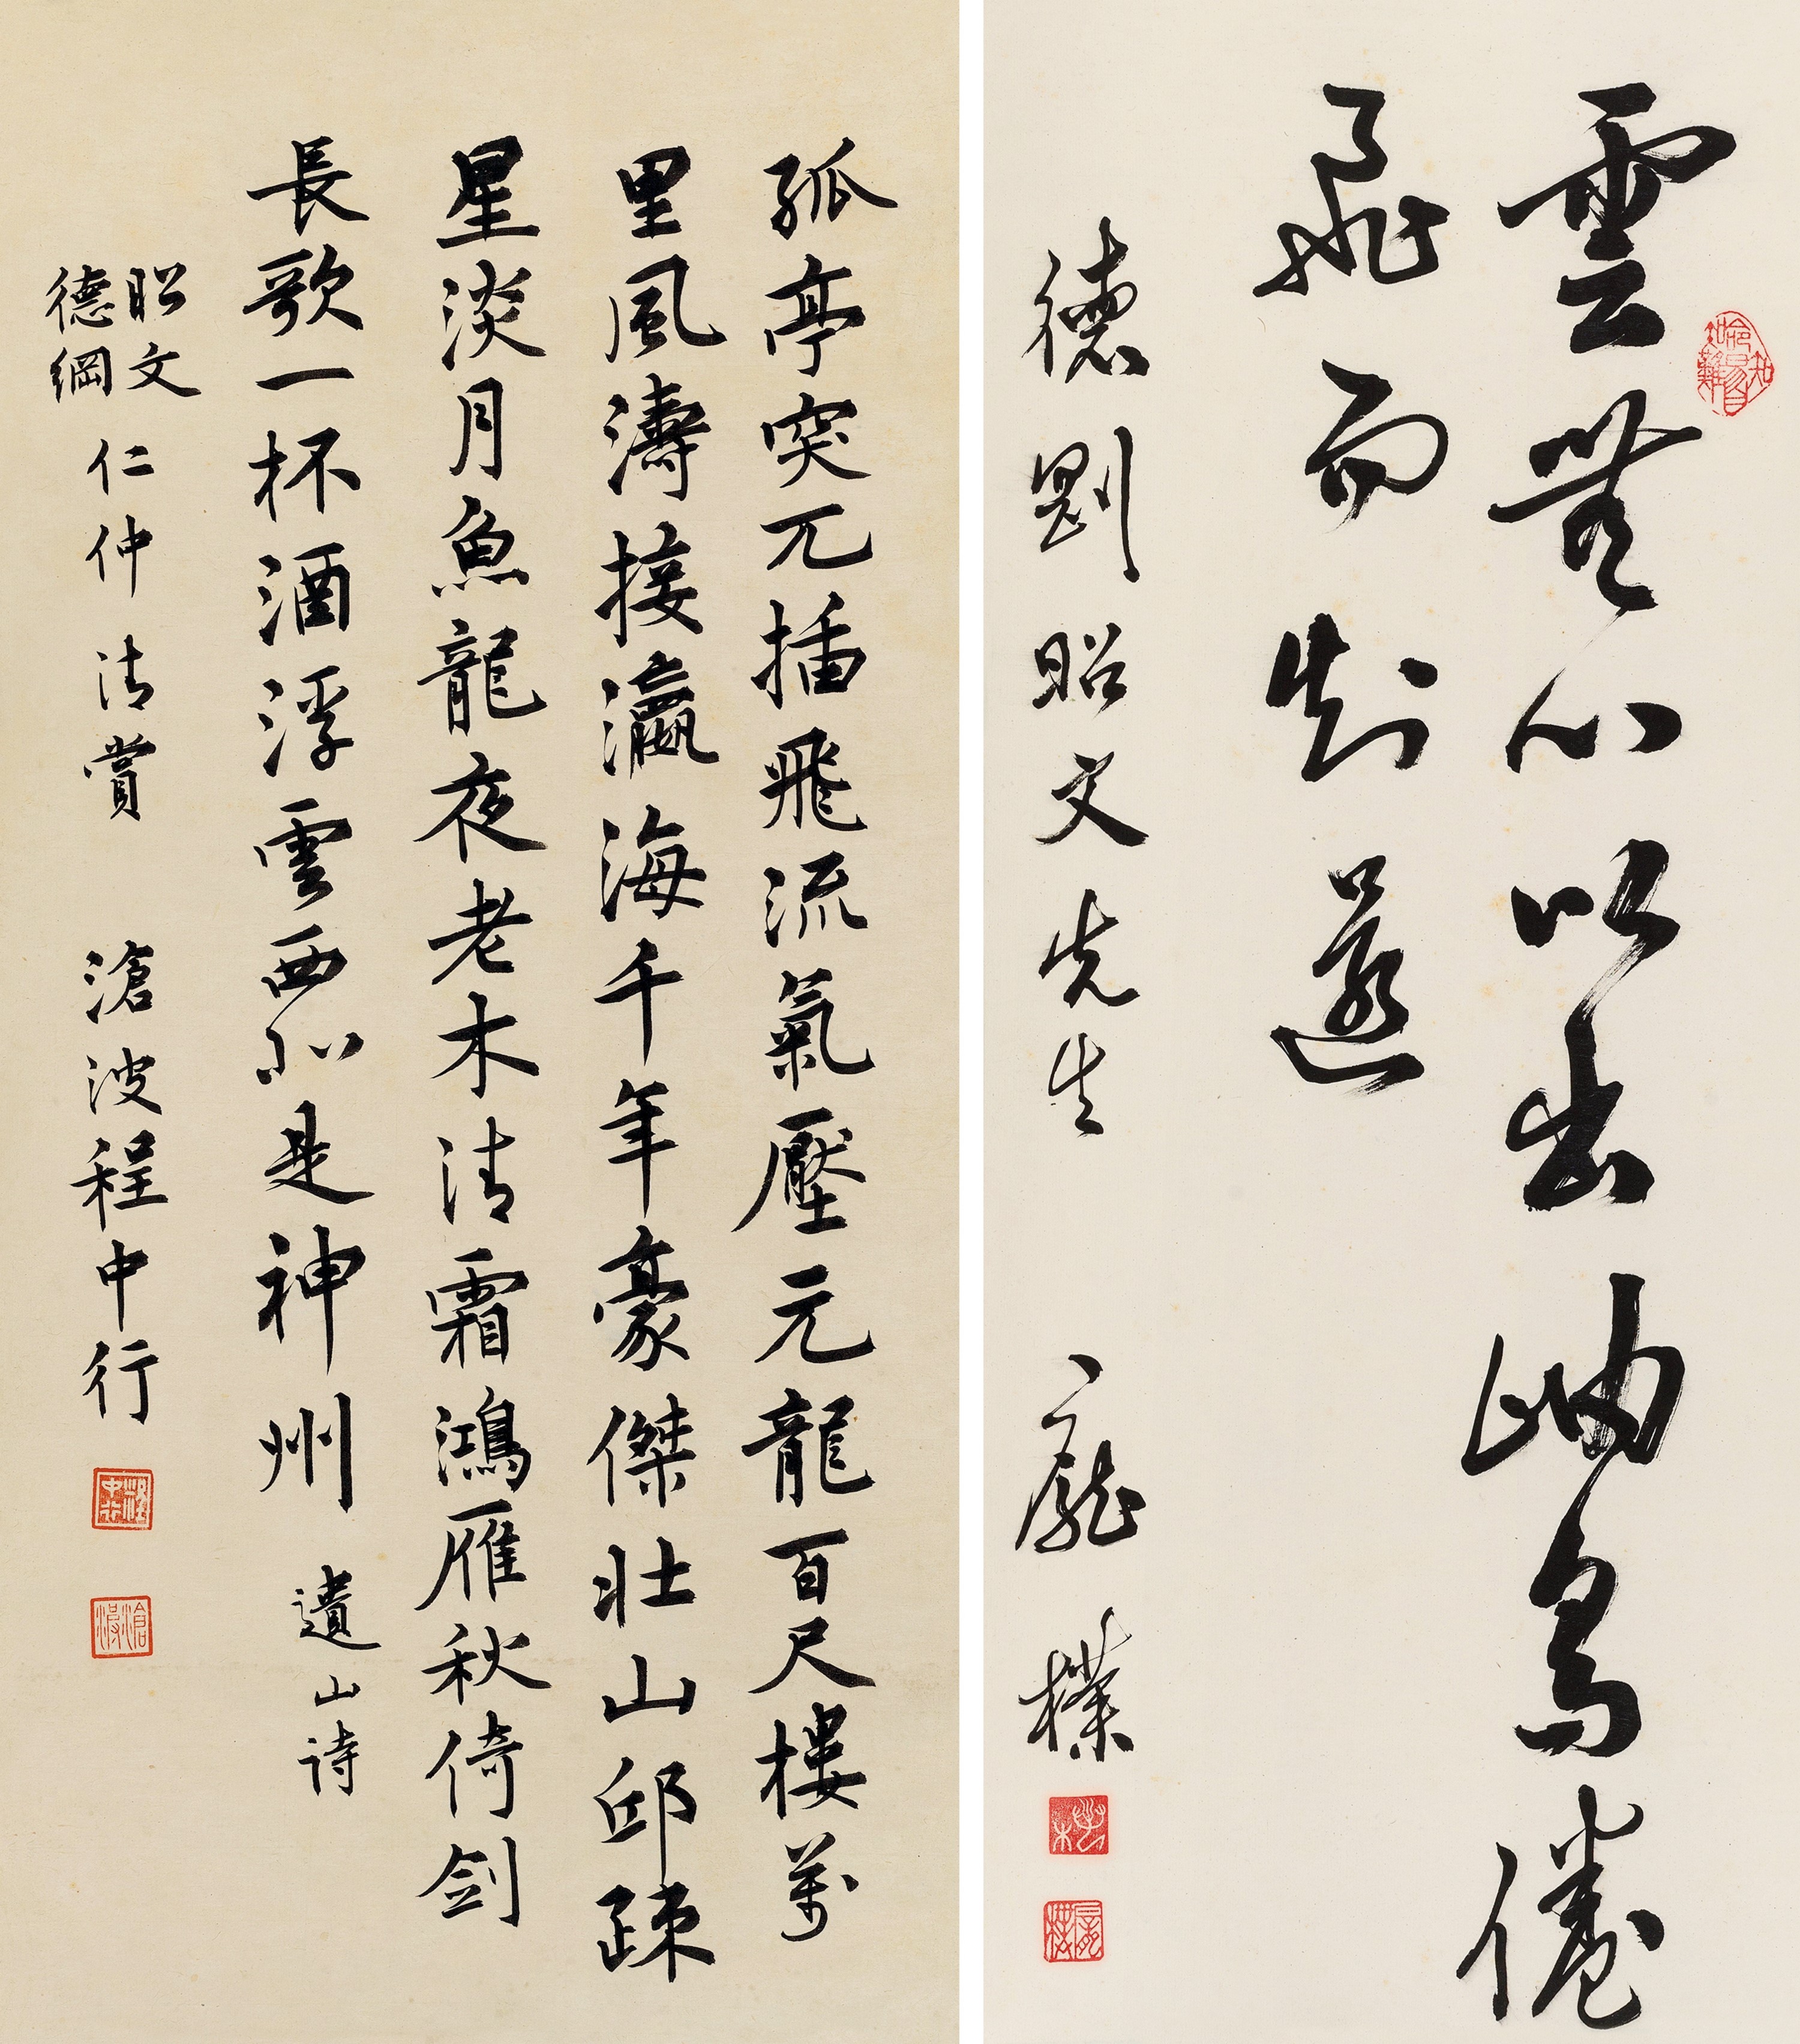 雲無心以出岫鳥倦
飛而知還
德剛昭文先生
龐樸
孤亭突兀插飛流氣壓元龍百尺樓萬
里風濤接瀛海千年豪傑壯山邱疎
星淡月魚龍夜老木清霜鴻雁秋倚剑
長歌一杯酒浮雲西北是神州
遺山詩
昭文
德綱
仁仲清賞
滄波程中行
程中行
滄波